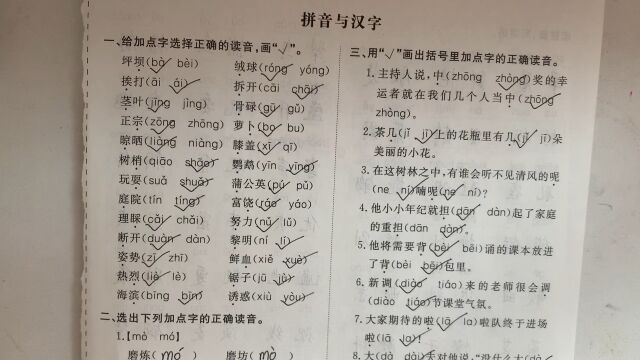 拼音与汉字
一、给加点字选择正确的读音,画“√”。
坪坝(bà bèi) 绒球(róng yóng)
挨打(āi ái) 拆开(cāi chāi)
茎叶(jīng jìng) 骨碌(gū gǔ)
正宗(zōng zhōng) 萝卜(bo bǔ)
晾晒(liàng niàng) 膝盖(xī qī)
树梢(qiāo shāo) 鹦鹉(yīn yīng)
玩耍(suǎ shuǎ) 蒲公英(pú pǔ)
庭院(tín tíng) 富饶(ráo yáo)
理睬(cǎi chǎi) 努力(nǔ lǔ)
断开(duàn dàn) 黎明(ní lí)
姿势(zī zhī) 鲜血(xiě xuè)
热烈(liè lè) 锯子(jū jù)
海滨(bīng bīn) 诱惑(xiù yòu)
二、选出下列加点字的正确读音。
1.【mò mó】
磨炼(mó) 磨坊(mò
三、用“√”画出括号里加点字的正确读音。
1. 主持人说,中(zhōng zhòng)奖的幸
运者就在我们几个人当中(zhōng
zhòng)。
2. 茶几(jǐ jī)上的花瓶里有几(jǐ jī)朵
美丽的小花。
3. 在这树林之中,有谁会听不见清风的呢
(ne ní)喃呢(ne ní)?
4. 他小小年纪就担(dān dàn)起了家庭
的重担(dān dàn)。
5. 他将需要背(bèi bēi)诵的课本放进
了背(bèi bēi)包里。
6. 新调(diào tiáo)来的老师很会调
(diào tiáo)节课堂气氛。
7. 大家期待的啦(lā la)啦队终于进场
啦(lā la)!
8. 大(dà dài)夫对他说,“没什么大(d